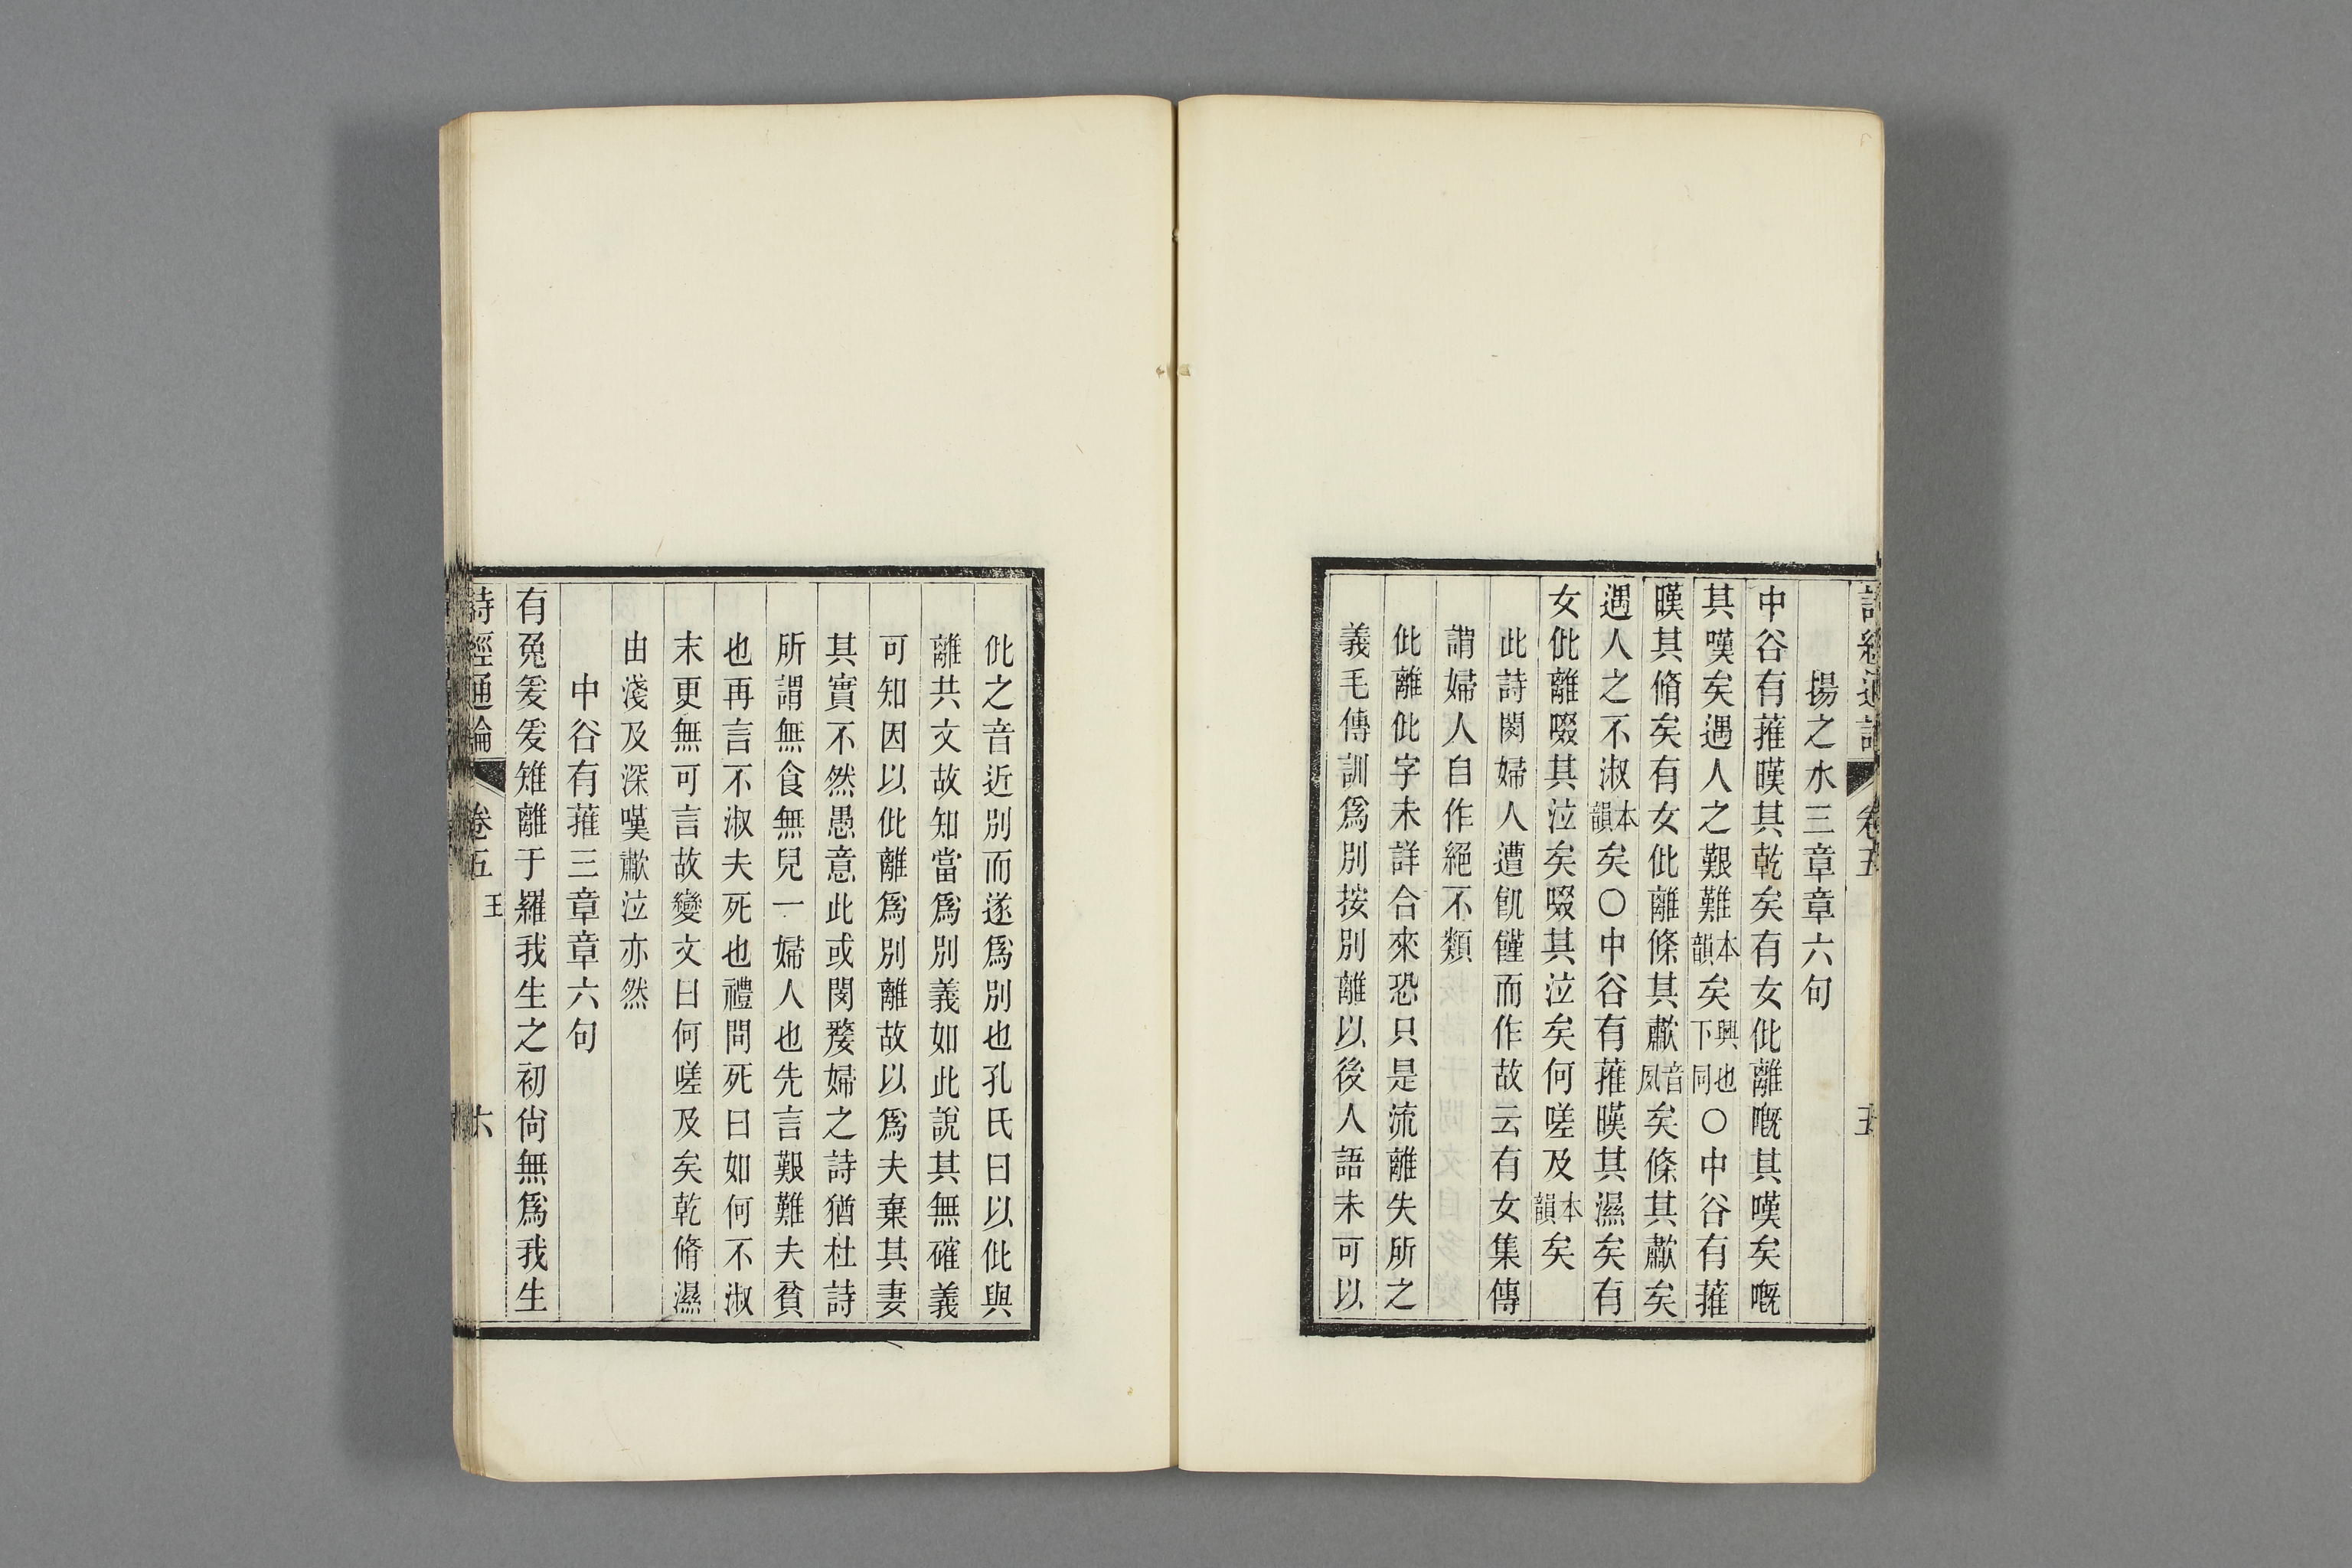 詩經通論 卷五 五
揚之水三章章六句
中谷有蓷暵其乾矣有女仳離嘅其嘆矣嘅
其嘆矣遇人之艱難本韻矣興也下同○中谷有蓷
暵其脩矣有女仳離條其歗音夙矣條其歗矣
遇人之不淑本韻矣○中谷有蓷暵其濕矣有
女仳離啜其泣矣啜其泣矣何嗟及本韻矣
此詩閔婦人遭飢饉而作故云有女集傳
謂婦人自作絕不類
仳離仳字未詳合來恐只是流離失所之
義毛傳訓爲別按別離以後人語未可以
仳之音近別而遂爲別也孔氏曰以仳與
離共文故知當爲別義如此說其無確義
可知因以仳離爲別離故以爲夫棄其妻
其實不然愚意此或閔嫠婦之詩猶杜詩
所謂無食無兒一婦人也先言艱難夫貧
也再言不淑夫死也禮問死曰如何不淑
末更無可言故變文曰何嗟及矣乾脩濕
由淺及深嘆歗泣亦然
中谷有蓷三章章六句
有兔爰爰雉離于羅我生之初尙無爲我生
詩經通論 卷五 王 六